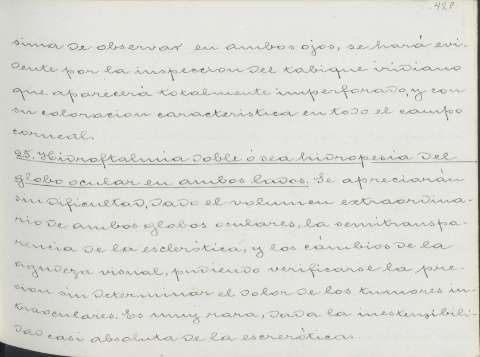 428
sima de observar en ambos ojos, se hará evi-
dente por la inspeccion del tabique iridiano
que aparecerá totalmente imperforado, y con
su coloracion caracteristica en todo el campo
corneal.
85. Hidroftalmia doble ó sea hidropesia del
globo ocular en ambos lados. Se apreciarán
sin dificultad, dado el volumen extraordina-
rio de ambos globos oculares, la semitranspa-
rencia de la esclerótica, y los cámbios de la
agudeza visual, pudiendo verificarse la pre-
sion sin determinar el dolor de los tumores in-
traoculares. Es muy rara, dada la inextensibili-
dad casi absoluta de la escrerótica.